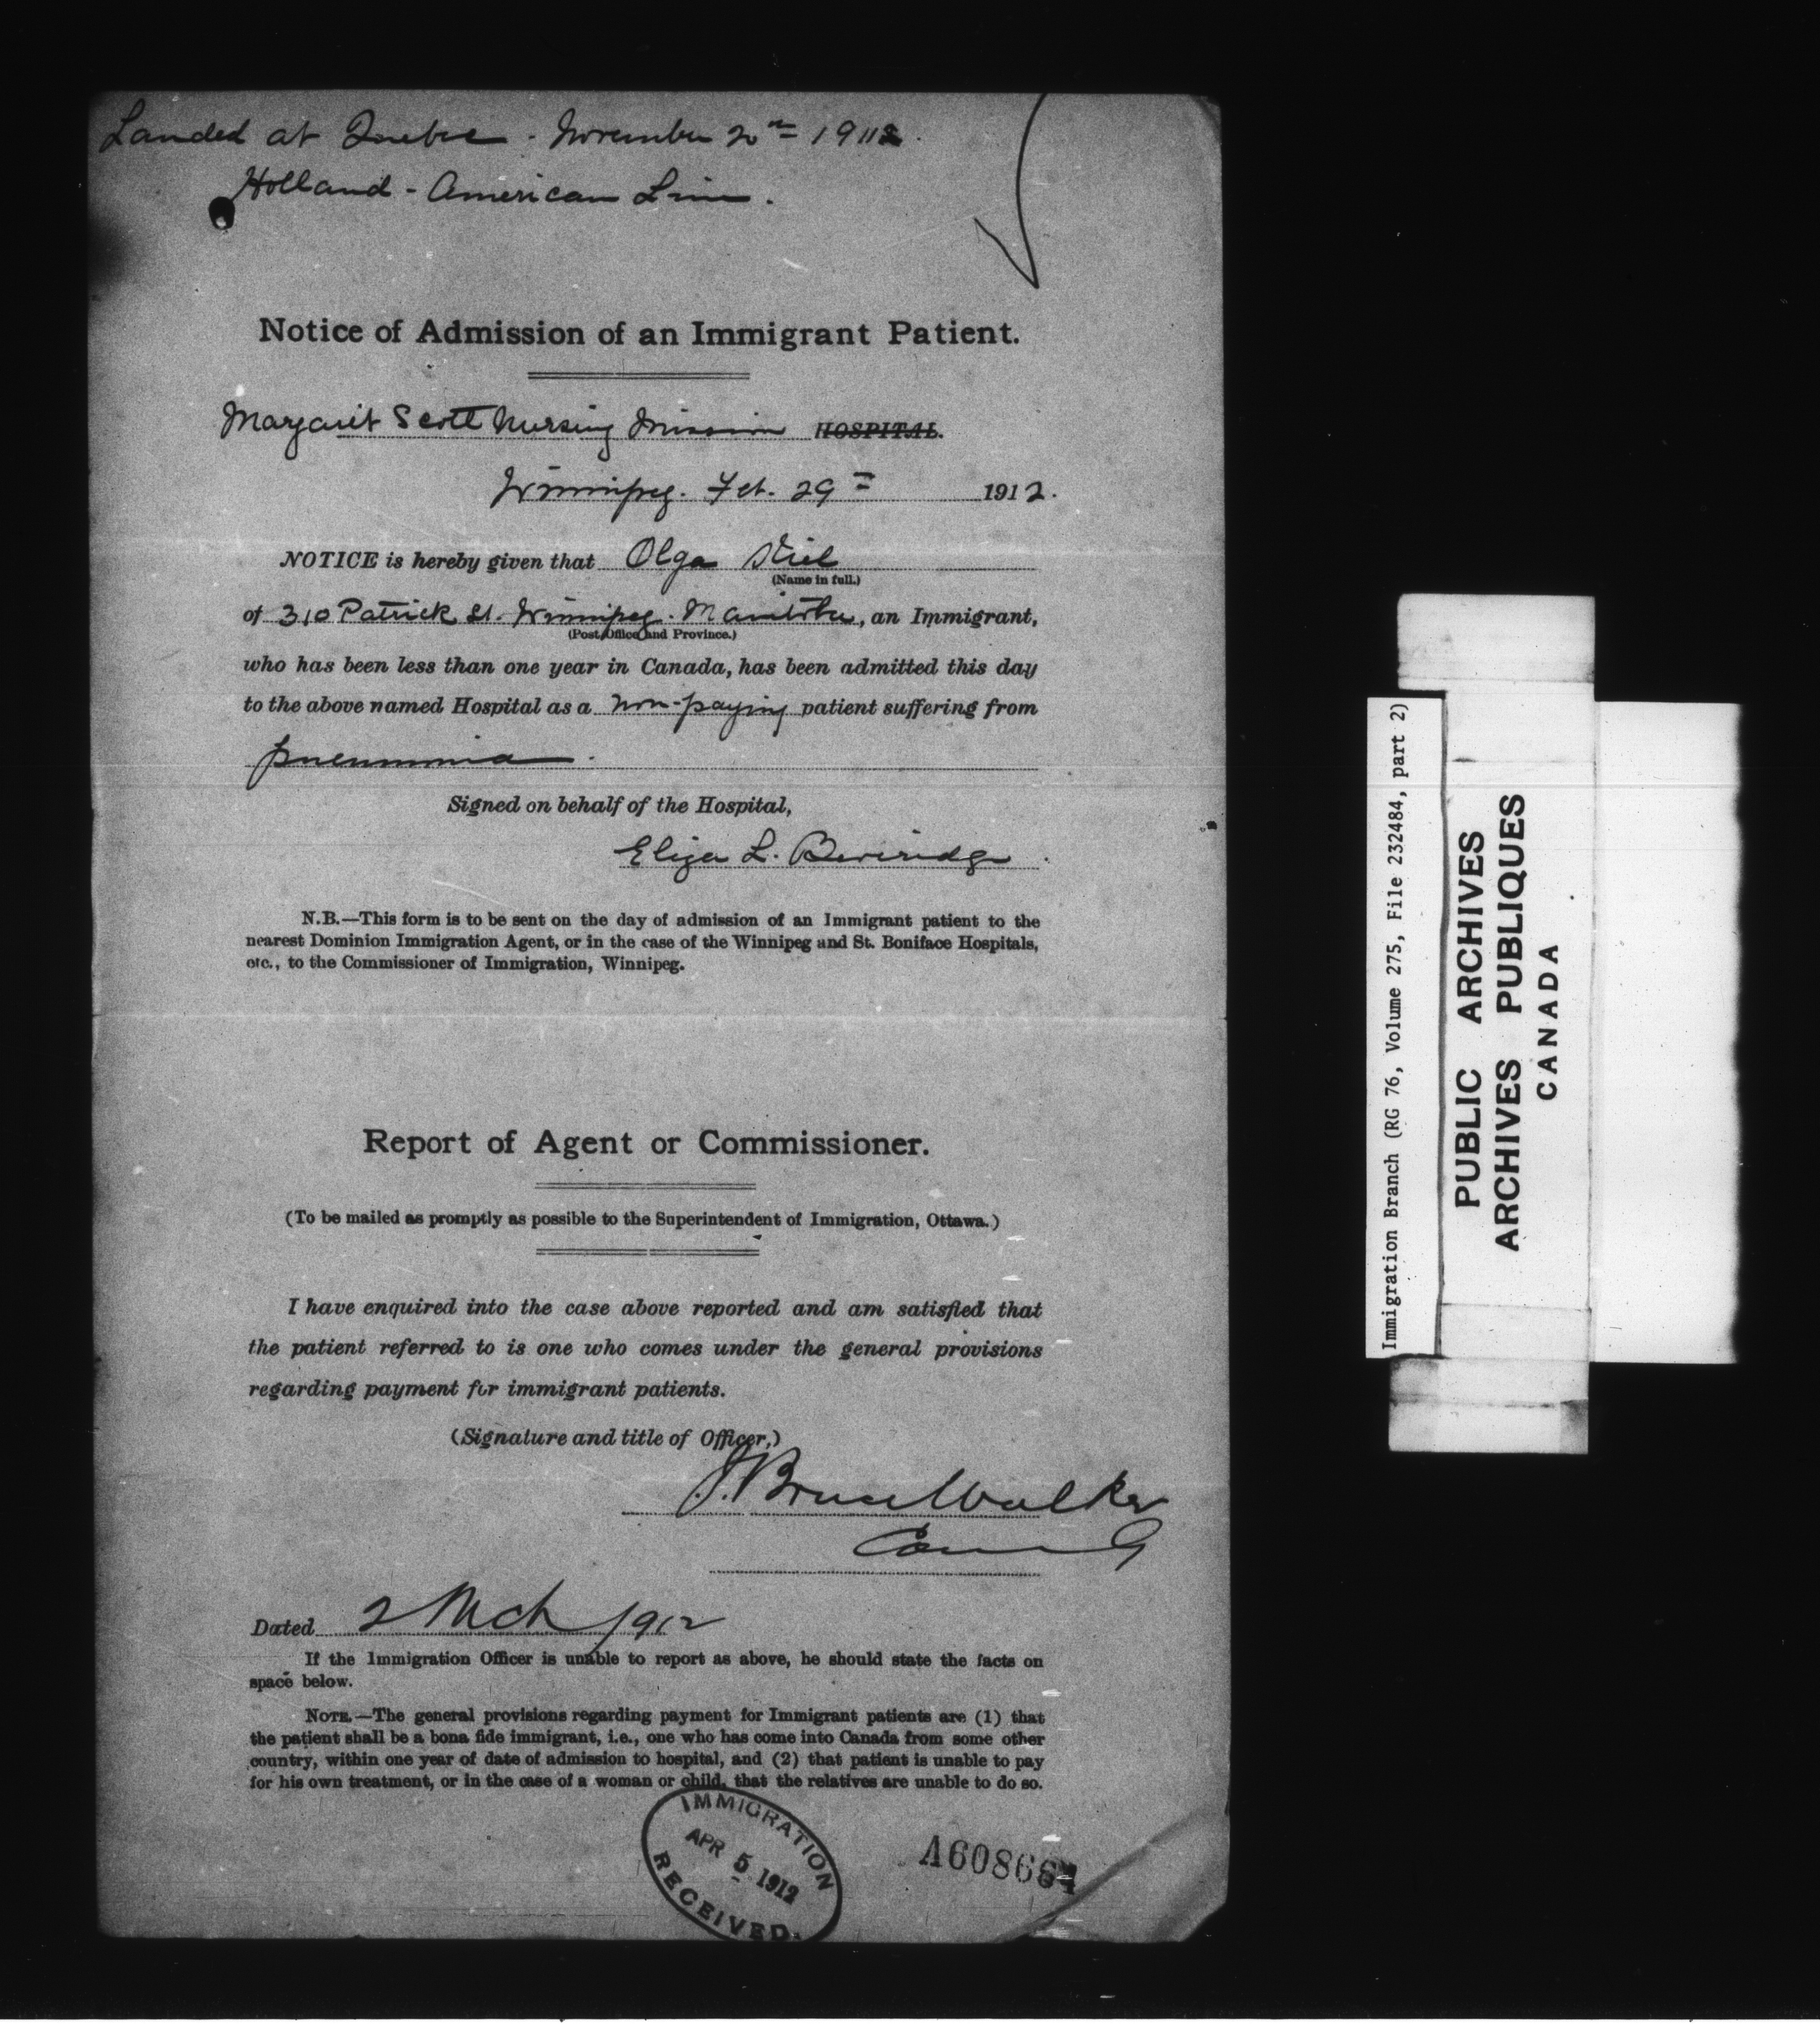 Landed at Quebec - November 2nd 1911.
Holland - American Line.
Notice of Admission of an Immigrant Patient.
Margaret Scott Nursing Mission HOSPITAL.
Winnipeg. Feb. 29th 1912.
NOTICE is hereby given that Olga
(Name in full.)
of 310 Patrick St. Winnipeg. Manitoba, an Immigrant,
(Post Office and Province.)
who has been less than one year in Canada, has been admitted this day
to the above named Hospital as a non-paying patient suffering from
pneumonia.
Signed on behalf of the Hospital,
Eliza L. Beveridge.
N.B.—This form is to be sent on the day of admission of an Immigrant patient to the
nearest Dominion Immigration Agent, or in the case of the Winnipeg and St. Boniface Hospitals,
etc., to the Commissioner of Immigration, Winnipeg.
Report of Agent or Commissioner.
(To be mailed as promptly as possible to the Superintendent of Immigration, Ottawa.)
I have enquired into the case above reported and am satisfied that
the patient referred to is one who comes under the general provisions
regarding payment for immigrant patients.
(Signature and title of Officer,)
J. Bruce Walker
Dated 2 Mch 1912
If the Immigration Officer is unable to report as above, he should state the facts on
space below.
NOTE.—The general provisions regarding payment for Immigrant patients are (1) that
the patient shall be a bona fide immigrant, i.e., one who has come into Canada from some other
country, within one year of date of admission to hospital, and (2) that patient is unable to pay
for his own treatment, or in the case of a woman or child, that the relatives are unable to do so.
IMMIGRATION
APR 5 1912
RECEIVED.
Immigration Branch (RG 76, Volume 275, File 232484, part 2)
PUBLIC ARCHIVES
ARCHIVES PUBLIQUES
CANADA